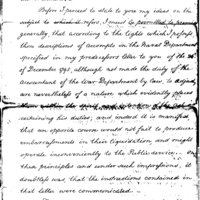 Before I proceed to state to you my ideas on the
subject to which it refers, I must be permitted to premise
generally, that according to the lights which I possess,
those descriptions of accompts in the Naval Department
specified in my predecessors letter to you of the
of December 1795 although not made the duty of the
Accountant of the War Department by law, to adjust,
are nevertheless of a nature which evidently places
them within the
sustaining his duties; and indeed it is manifest,
that an opposite course would not fail to produce
embarrassments in their liquidation, and might
operate inconveniently to the Public service. On
these principles and under such impressions, it
doubtless was, that the instructions contained in
that letter were communicated.